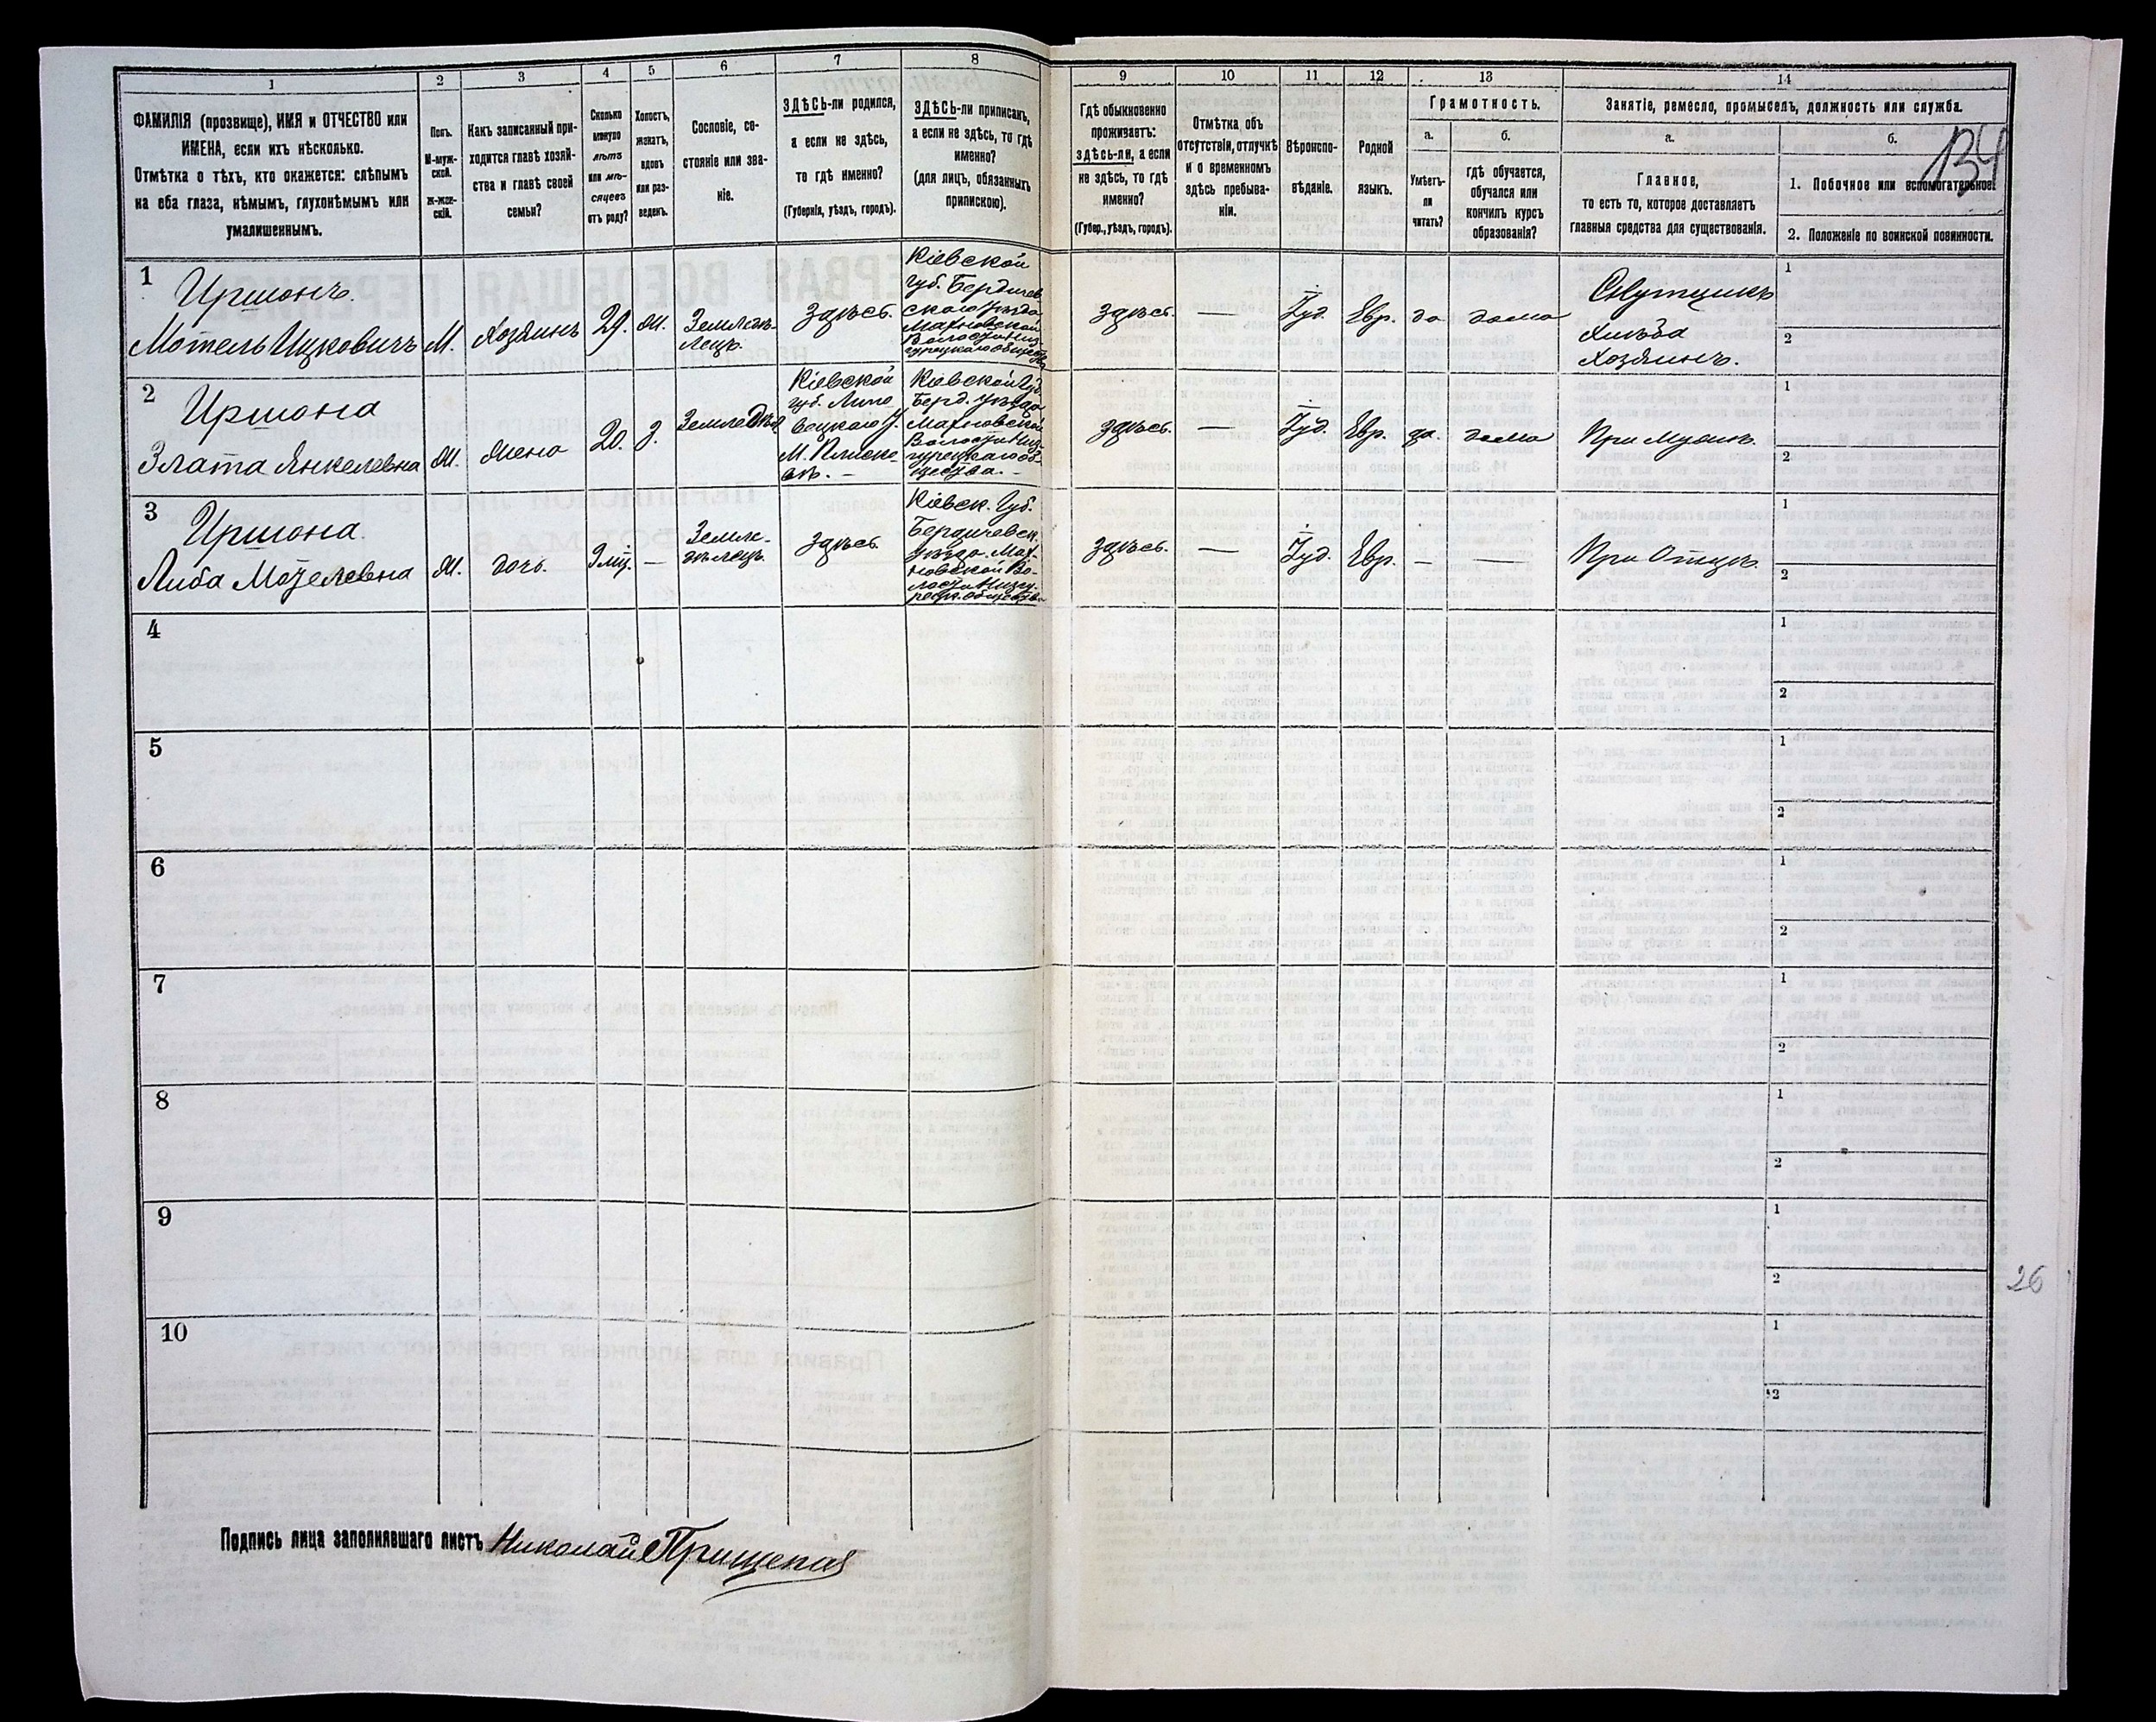 1
2
3
4
5
6
7
8
9
10
11
12
13
14
ФАМИЛІЯ (прозвище), ИМЯ и ОТЧЕСТВО или
ИМЕНА, если ихъ нѣсколько.
Отмѣтка о тѣхъ, кто окажется: слѣпымъ
на оба глаза, нѣмымъ, глухонѣмымъ или
умалишеннымъ.
Полъ.
М-муж-
ской.
ж-жен-
скій.
Какъ записанный при-
ходится главѣ хозяй-
ства и главѣ своей
семьи?
Сколько
минуло
лѣтъ
или мѣ-
сяцевъ
отъ роду?
Холостъ,
женатъ,
вдовъ
или раз-
веденъ.
Сословіе, со-
стояніе или зва-
ніе.
ЗДѢСЬ-ли родился,
а если не здѣсь,
то гдѣ именно?
(Губернія, уѣздъ, городъ).
ЗДѢСЬ-ли приписанъ,
а если не здѣсь, то гдѣ
именно?
(для лицъ, обязанныхъ
припискою).
Гдѣ обыкновенно
проживаетъ:
здѣсь-ли, а если
не здѣсь, то гдѣ
именно?
(Губер., уѣздъ, городъ).
Отмѣтка объ
отсутствіи, отлучкѣ
и о временномъ
здѣсь пребыва-
ніи.
Вѣроиспо-
вѣданіе.
Родной
языкъ.
Грамотность.
а.
б.
Умѣетъ-
ли
читать?
гдѣ обучается,
обучался или
кончилъ курсъ
образованія?
Занятіе, ремесло, промыселъ, должность или служба.
а.
б.
Главное,
то есть то, которое доставляетъ
главныя средства для существованія.
1. Побочное или вспомогательное.
2. Положеніе по воинской повинности.
134
1
Иршонъ.
Мотель Ицковичъ
М.
Хозяинъ
29.
ж.
Земледѣ-
лецъ.
здѣсь.
Кіевской
губ. Бердичев-
скаго уѣзда
Махновской
Волости Низ-
гурецкаго общества
здѣсь.
—
Іуд.
Евр.
да
дома
Скупщикъ
хлѣба
хозяинъ.
1
2
2
Иршона
Злата Янкелевна
Ж.
жена
20.
З.
Земледѣл
Кіевской
губ. Липо
вецкаго у.
М. Плиско-
вѣ. —
Кіевской Губ.
Берд. уѣзда
Махновской
Волости Низ-
гурецкаго об-
щества. —
здѣсь.
—
Іуд.
Евр.
да.
дома
При мужѣ.
1
2
3
Иршона.
Либа Мотелевна
Ж.
дочь.
9 мѣц.
—
Земле-
дѣлецъ.
здѣсь.
Кіевск. Губ.
Бердичевск.
уѣзда. Мах-
новской Во-
лости Низгу-
рецк. общества
здѣсь.
—
Іуд.
Евр.
—
—
При Отцѣ.
1
2
4
1
2
5
1
2
6
1
2
7
1
2
8
1
2
9
1
2
26
10
1
2
Подпись лица заполнявшаго листъ Николай Прищепа